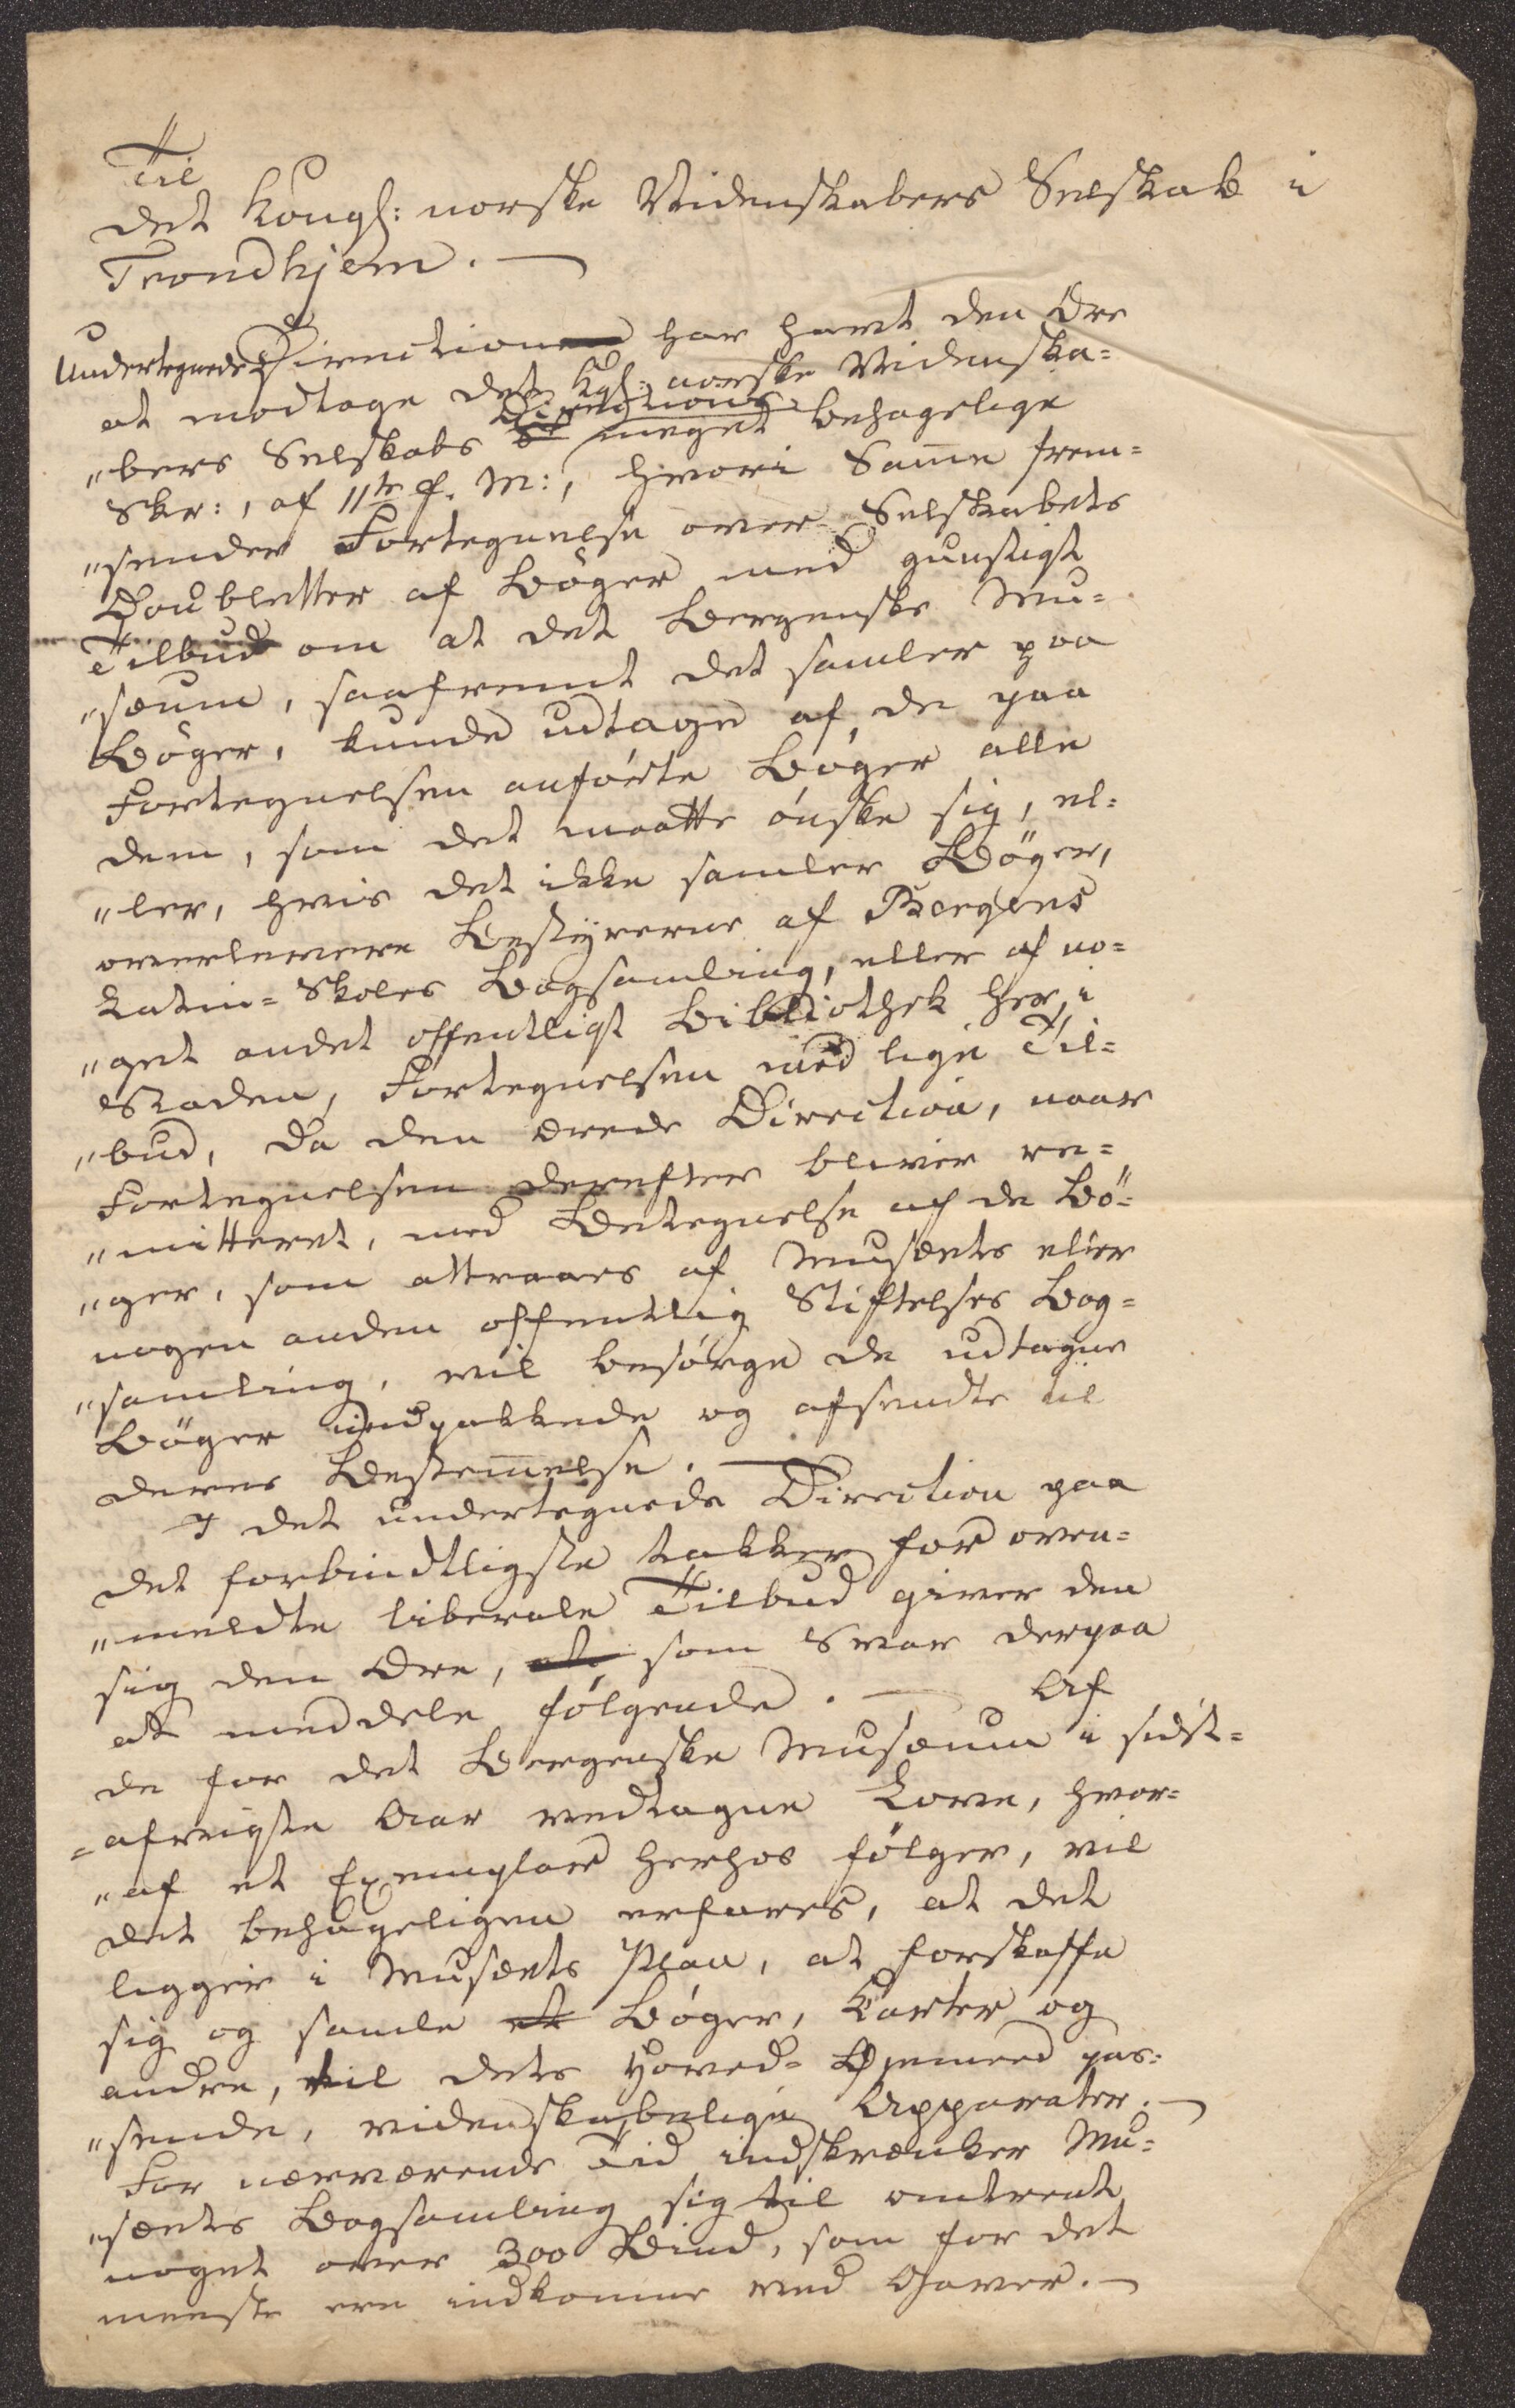 Til
det Kongl: norske Videnskabers Selskab i
Trondhjem. —
Undertegnede Direction har havt den Ære
at modtage det Kgl: norske Videnska=
"bers Selskabs Directions meget behagelige
Skr:, af 11te f. M:, hvori Samme frem=
"sender Fortegnelse over Selskabets
Doubletter af Bøger med gunstigst
Tilbud om at det Bergenske Mu=
"sæum, saafremt det samler paa
Bøger, kunde udtage af de paa
Fortegnelsen anførte Bøger alle
dem, som det maatte ønske sig, el=
"ler, hvis det ikke samler Bøger,
overlevere Bestyrerne af Bergens
Latin=Skoles Bogsamling, eller af no=
"get andet offentligt Bibliothek her i
Staden, Fortegnelsen med lige Til=
"bud, da den ærede Direction, naar
Fortegnelsen derefter bliver re=
"mitteret, med Betegnelse af de Bø=
"ger, som attraaes af Musæets eller
nogen anden offentlig Stiftelses Bog=
"samling, vil besørge de udtagne
Bøger indpakkede og afsendte til
deres Bestemmelse. —
I det undertegnede Direction paa
det forbindtligste takker for oven=
"meldte liberale Tilbud giver den
sig den Ære, at, som Svar derpaa
at meddele følgende. — Af
de for det Bergenske Musæum i sidst=
=afvigte Aar vedtagne Love, hvor=
"af et Exemplar herhos følger, vil
det behageligen erfares, at det
ligger i Musæets Plan, at forskaffe
sig og samle Bøger, Karter og
andre, til dets Hoved=Øiemeed pas=
"sende, videnskabelige Apparater. —
For nærværende Tid indskrænker Mu=
"sæets Bogsamling sig til omtrent
noget over 300 Bind, som for det
meeste ere indkomne ved Gaver. —